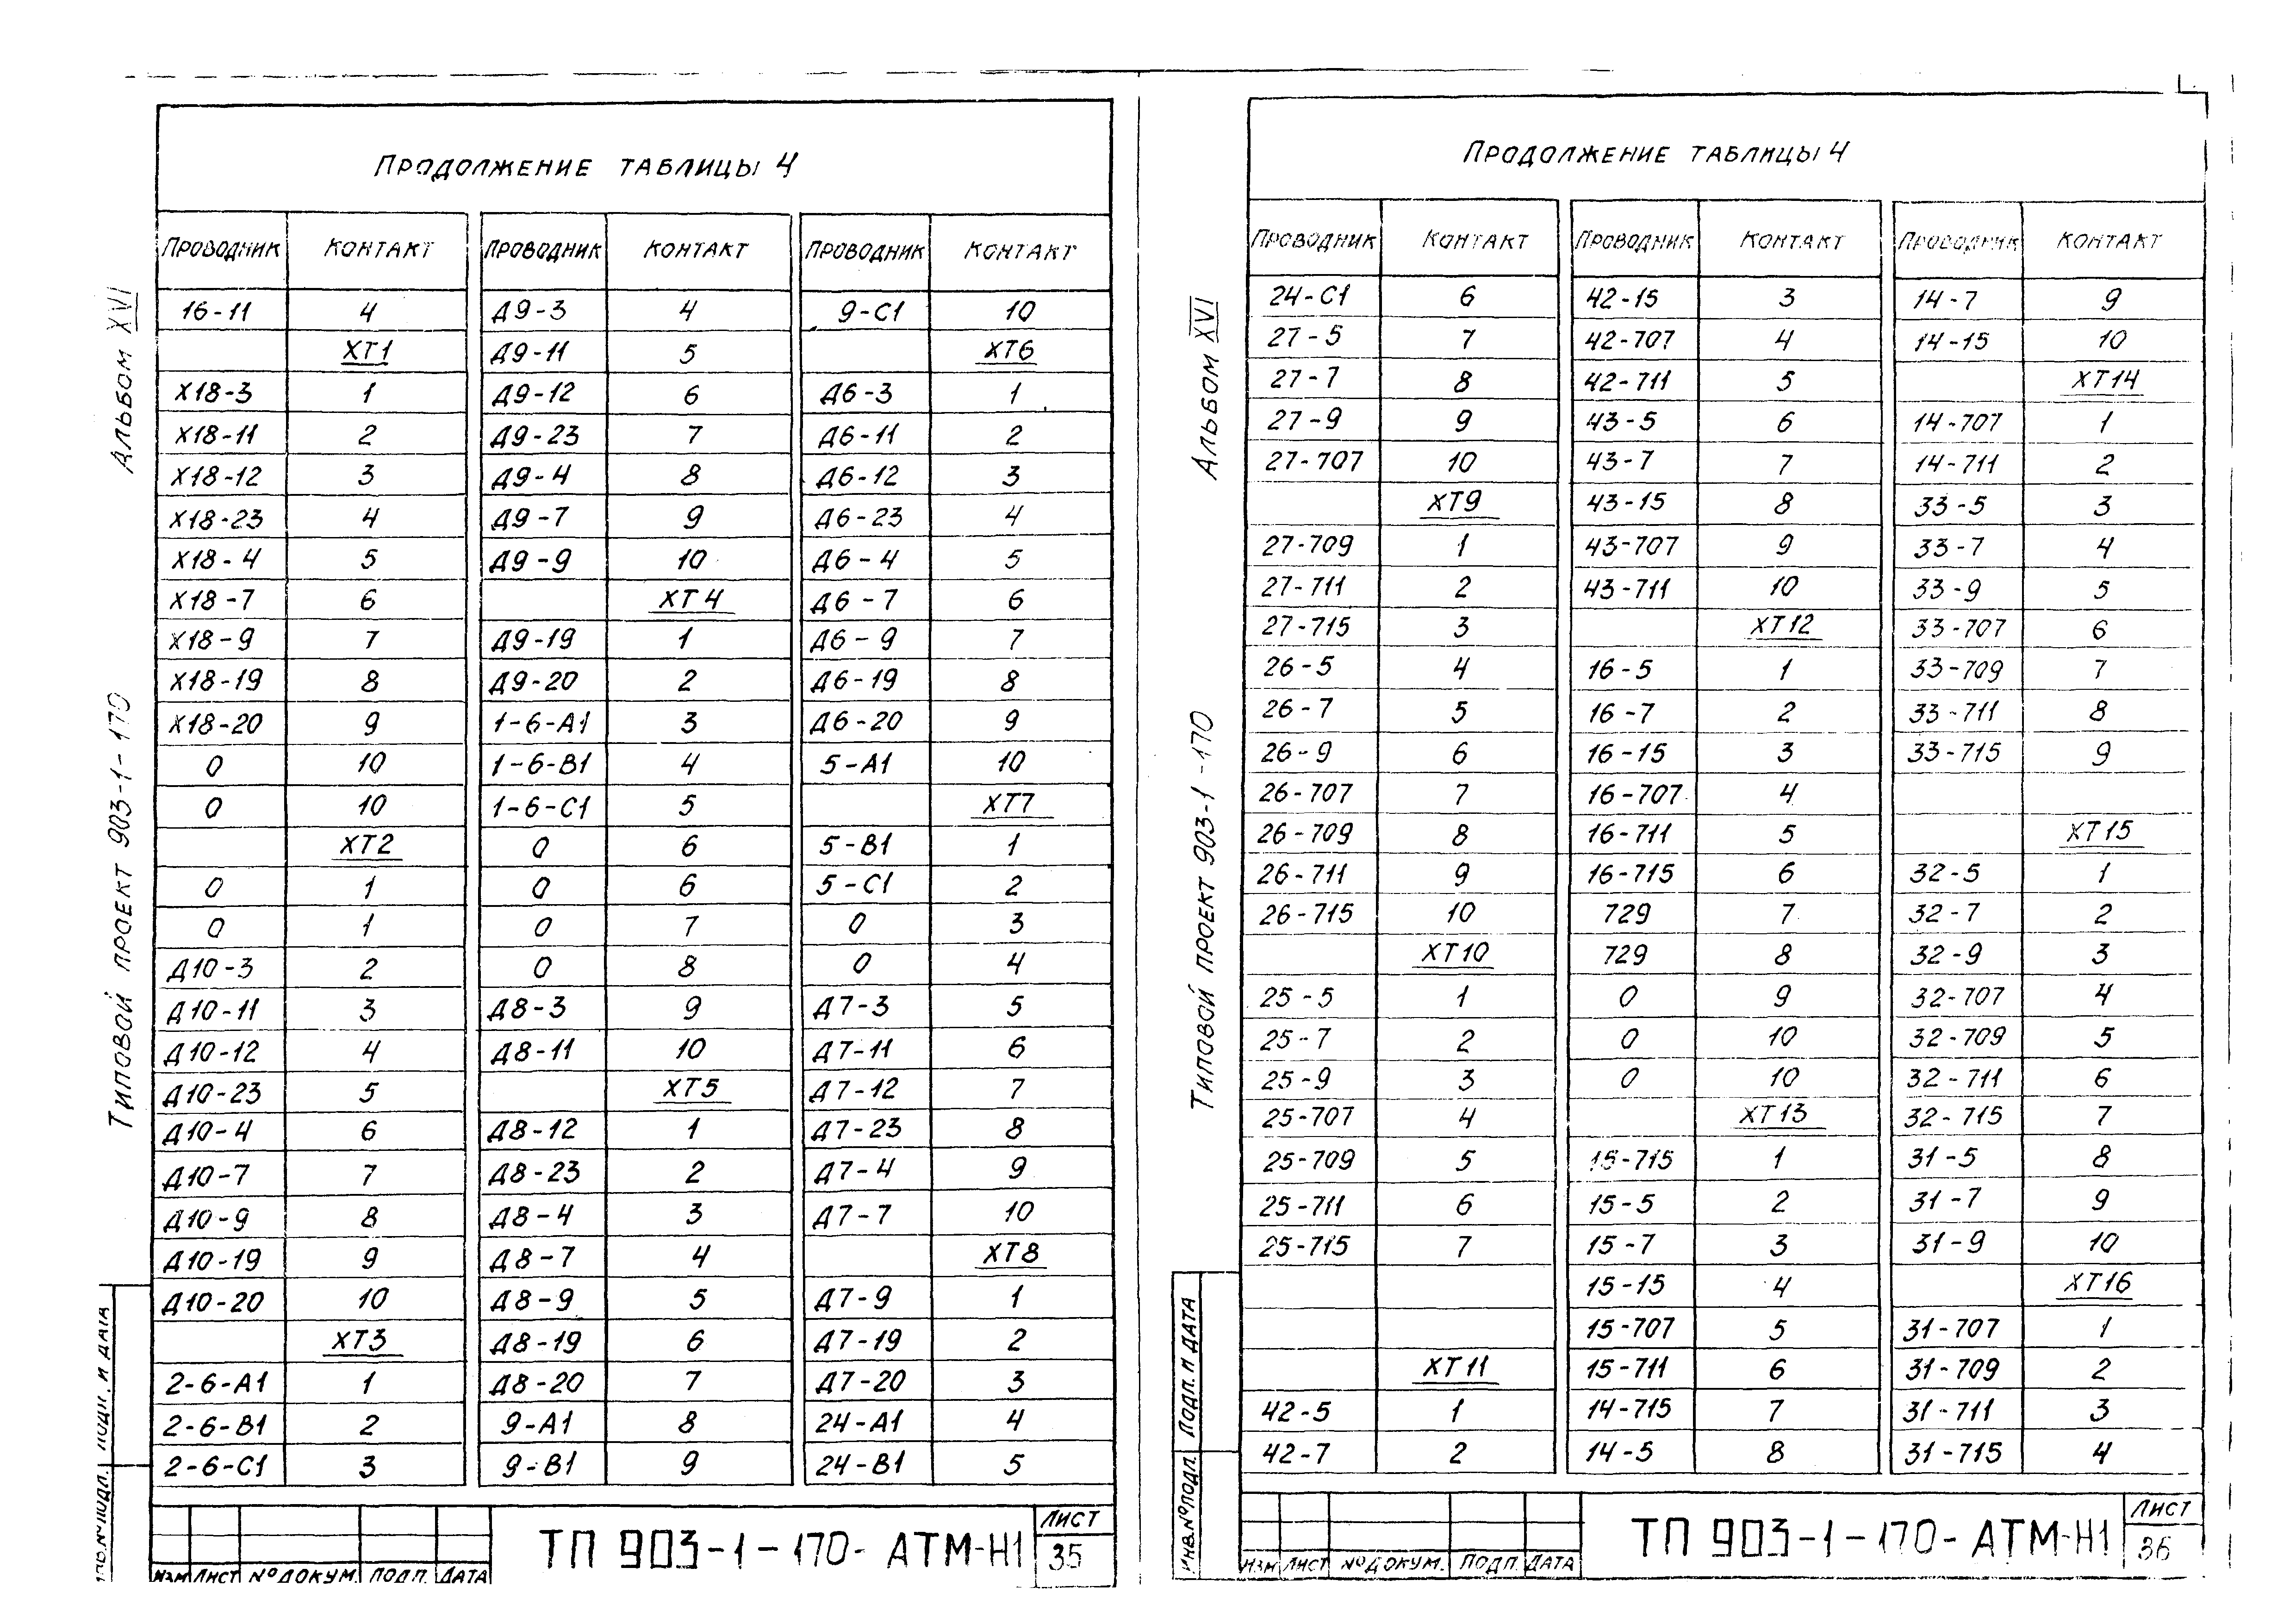 Альбом XVI
Типовой проект 903-1-170
Продолжение таблицы 4
Проводник Контакт Проводник Контакт Проводник Контакт
16-11 4 Д9-3 4 9-С1 10
ХТ1 Д9-11 5 ХТ6
Х18-3 1 Д9-12 6 Д6-3 1
Х18-11 2 Д9-23 7 Д6-11 2
Х18-12 3 Д9-4 8 Д6-12 3
Х18-23 4 Д9-7 9 Д6-23 4
Х18-4 5 Д9-9 10 Д6-4 5
Х18-7 6 ХТ4 Д6-7 6
Х18-9 7 Д9-19 1 Д6-9 7
Х18-19 8 Д9-20 2 Д6-19 8
Х18-20 9 1-6-А1 3 Д6-20 9
0 10 1-6-В1 4 5-А1 10
0 10 1-6-С1 5 ХТ7
ХТ2 0 6 5-В1 1
0 1 0 6 5-С1 2
0 1 0 7 0 3
Д10-3 2 0 8 0 4
Д10-11 3 Д8-3 9 Д7-3 5
Д10-12 4 Д8-11 10 Д7-11 6
Д10-23 5 ХТ5 Д7-12 7
Д10-4 6 Д8-12 1 Д7-23 8
Д10-7 7 Д8-23 2 Д7-4 9
Д10-9 8 Д8-4 3 Д7-7 10
Д10-19 9 Д8-7 4 ХТ8
Д10-20 10 Д8-9 5 Д7-9 1
ХТ3 Д8-19 6 Д7-19 2
2-6-А1 1 Д8-20 7 Д7-20 3
2-6-В1 2 9-А1 8 24-А1 4
2-6-С1 3 9-В1 9 24-В1 5
Подп. и дата
№ подл.
ТП 903-1-170-АТМ-Н1
Лист
35
Изм Лист № докум. Подп. Дата
Альбом XVI
Типовой проект 903-1-170
Продолжение таблицы 4
Проводник Контакт Проводник Контакт Проводник Контакт
24-С1 6 42-15 3 14-7 9
27-5 7 42-707 4 14-15 10
27-7 8 42-711 5 ХТ14
27-9 9 43-5 6 14-707 1
27-707 10 43-7 7 14-711 2
ХТ9 43-15 8 33-5 3
27-709 1 43-707 9 33-7 4
27-711 2 43-711 10 33-9 5
27-715 3 ХТ12 33-707 6
26-5 4 16-5 1 33-709 7
26-7 5 16-7 2 33-711 8
26-9 6 16-15 3 33-715 9
26-707 7 16-707 4
26-709 8 16-711 5 ХТ15
26-711 9 16-715 6 32-5 1
26-715 10 729 7 32-7 2
ХТ10 729 8 32-9 3
25-5 1 0 9 32-707 4
25-7 2 0 10 32-709 5
25-9 3 0 10 32-711 6
25-707 4 ХТ13 32-715 7
25-709 5 15-715 1 31-5 8
25-711 6 15-5 2 31-7 9
25-715 7 15-7 3 31-9 10
15-15 4 ХТ16
15-707 5 31-707 1
ХТ11 15-711 6 31-709 2
42-5 1 14-715 7 31-711 3
42-7 2 14-5 8 31-715 4
Подп. и дата
Инв. № подл.
ТП 903-1-170-АТМ-Н1
Лист
36
Изм Лист № докум. Подп. Дата